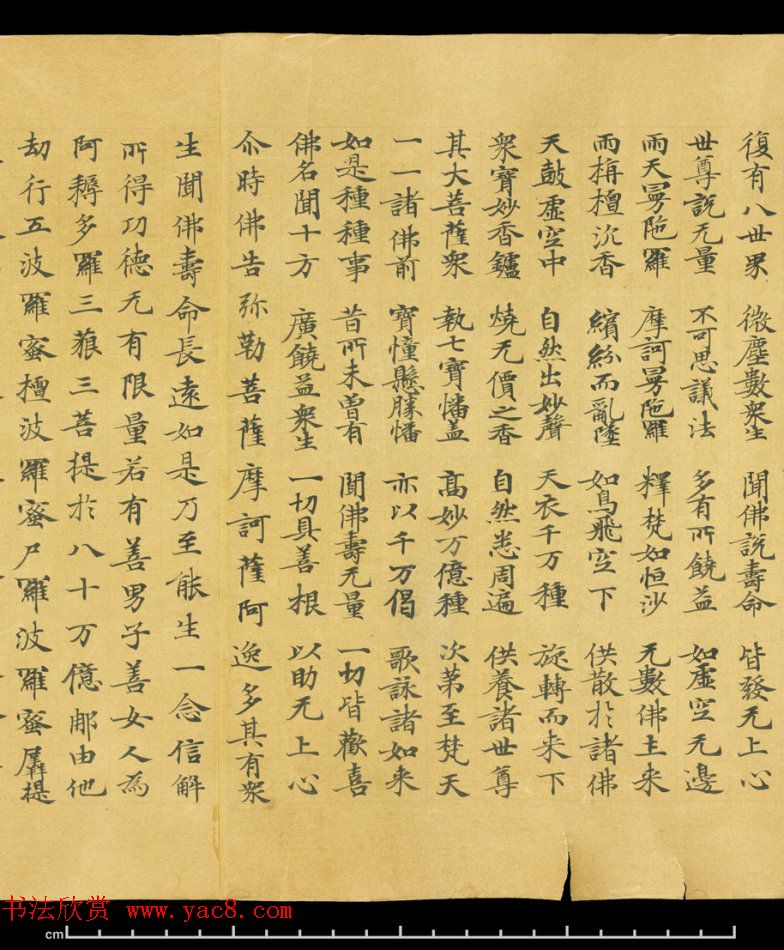 復有八世界 微塵數衆生 聞佛說壽命 皆發无上心
世尊說无量 不可思議法 多有所饒益 如虛空无邊
雨天曼陁羅 摩訶曼陁羅 釋梵如恒沙 无數佛土來
雨栴檀沉香 繽紛而亂墜 如鳥飛空下 供散於諸佛
天鼓虛空中 自然出妙聲 天衣千万種 旋轉而来下
衆寶妙香鑪 燒无價之香 自然悉周遍 供養諸世尊
其大菩薩衆 執七寶幡盖 高妙万億種 次第至梵天
一一諸佛前 寶幢懸勝幡 亦以千万偈 歌詠諸如来
如是種種事 昔所未曽有 聞佛壽无量 一切皆歡喜
佛名聞十方 廣饒益衆生 一切具善根 以助无上心
尒時佛告弥勒菩薩摩訶薩阿逸多其有衆
生聞佛壽命長遠如是乃至能生一念信解
所得功德无有限量若有善男子善女人為
阿耨多羅三藐三菩提於八十万億那由他
劫行五波羅蜜檀波羅蜜尸羅波羅蜜羼提
书法欣赏 www.yac8.com
cm